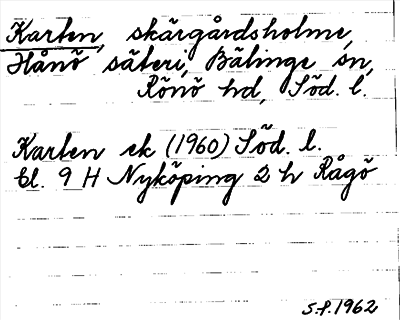 Karten, skärgårdsholme,
Hånö säteri, Bälinge sn,
Rönö hd, Söd. l.
Karten ek (1960) Söd. l.
bl. 9 H Nyköping 2 h Rågö
S.f. 1962